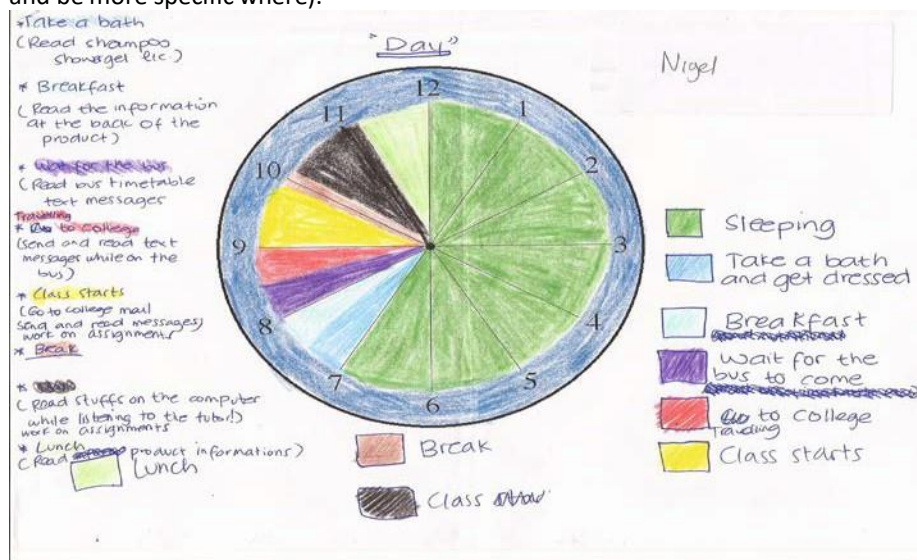 and be more specific where).
*Take a bath
(Read shampoo
showgel etc.)
* Breakfast
(Read the information
at the back of the
product)
* Wait for the bus
(Read bus timetable
text messages
Travelling
* to College
(send and read text
messages while on the
bus)
* Class starts
(Go to college mail
send and read messages)
work on assignments
* Break
*
(Read stuffs on the computer
while listening to the tutor!)
work on assignments
* Lunch
(Read product informations)
Lunch
"Day"
Nigel
12
1
2
3
4
5
6
7
8
9
10
11
Break
Class
Sleeping
Take a bath
and get dressed
Breakfast
Wait for the
bus to come
to College
Travelling
Class starts